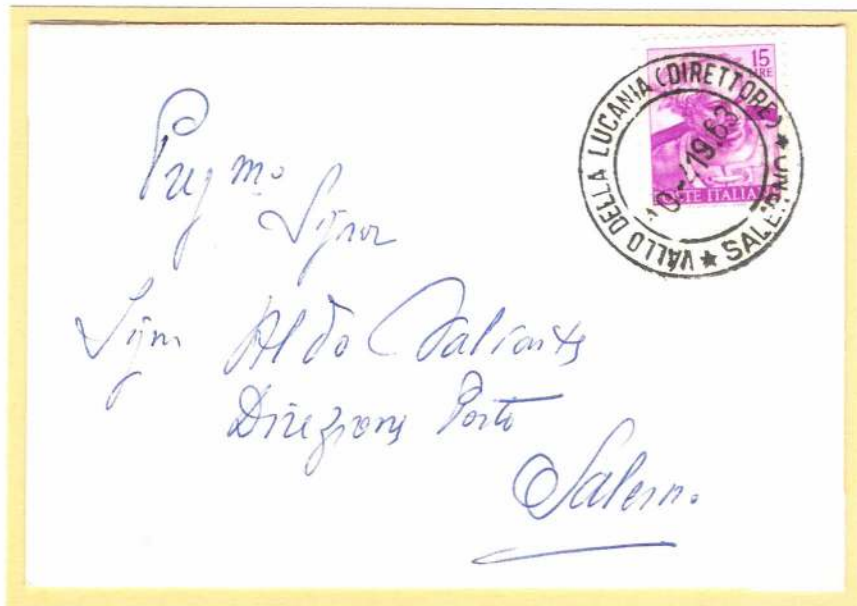 15
LIRE
POSTE ITALIANE
VALLO DELLA LUCANIA (DIRETTORE) ★ SALERNO ★
-4 1963
Preg mo
Signor
Sign Aldo Valiante
Direzione Poste
Salerno